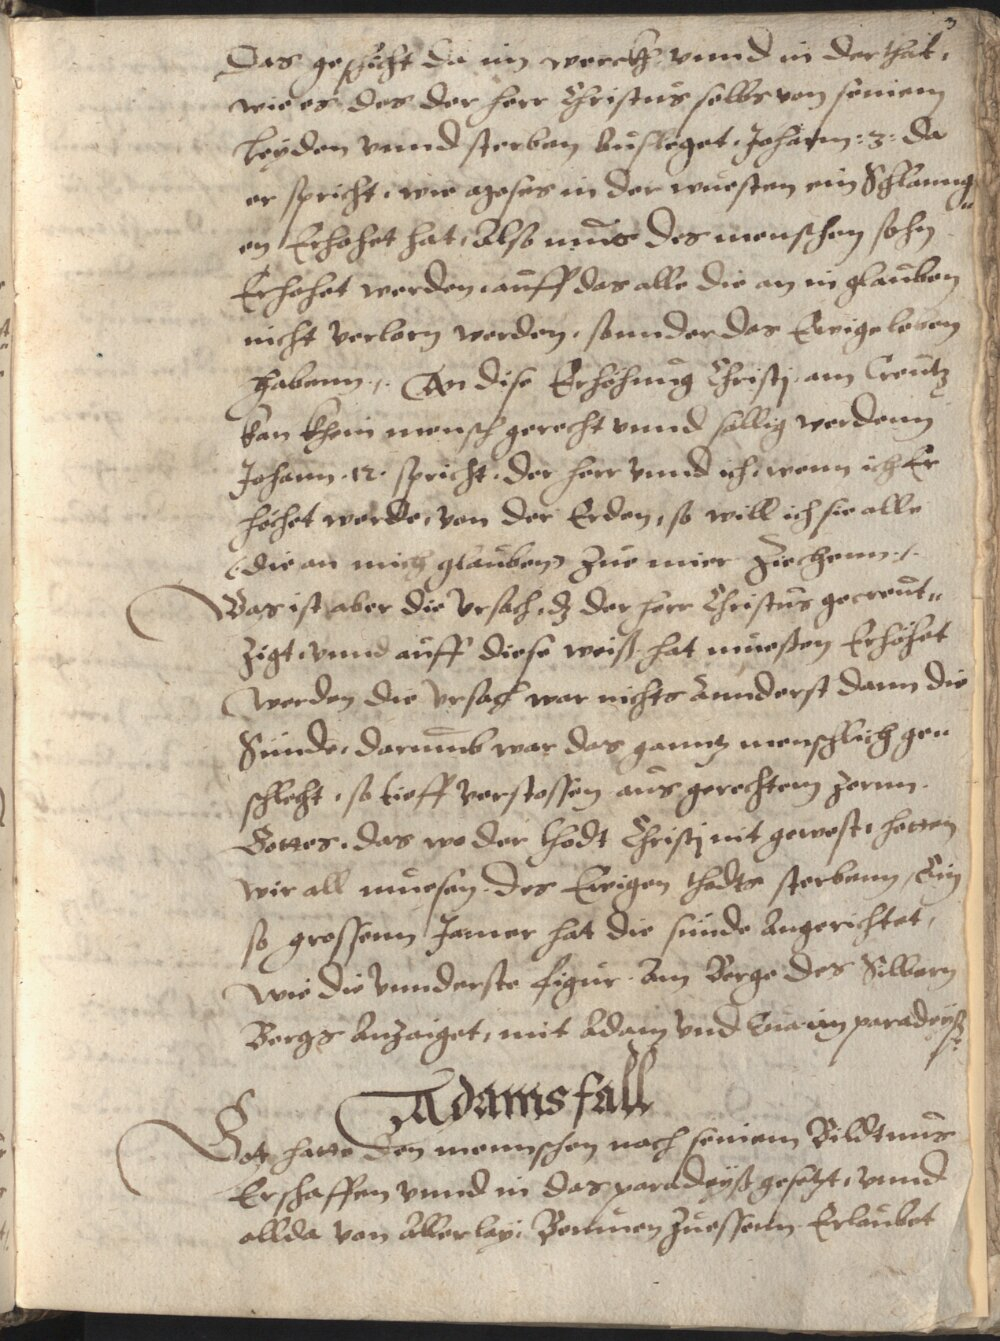 3
Das geschicht da im werckh vnnd in der that,
wie es des der herr Christus selbs von seinem
leyden vnnd sterben ausleget, Johann: 3: da
er spricht, wie Moses in der wuesten ein Schlanng„
en Erhohet hat, Also mus des menschen sohn
Erhohet werden, auff das alle die an in glauben
nicht verlorn werden, sonnder das Ewige leben
habenn,. An dise Erhohung Christj am Creutz
kan khein mensch gerecht vnnd sällig werdenn
Johann .12. spricht, der herr vnnd ich, wenn ich Er
höchet werde, von der Erden, so will ich sie alle
(die an mich glauben) zue mier Ziechenn,.
Was ist aber die vrsach, dz der herr Christus gecreut„
zigt, vnnd auff diese weiß hat müessen Erhöhet
werden die vrsach war nichts annderst dann die
Sünde, darumb war das ganntz menschlich ge„
schlecht, so tieff verstossen aus gerechtem zornn
Gottes, das wo der thodt Christj nit gewest, hetten
wir all müesen des Ewigen thodts sterbenn, Ein
so grossenn Jamer hat die sünde Angerichtet,
wie die vnnderste figur Am Berge des Silbern
Bergs Anzaiget, mit Adam vnd Eua im paradeyß,
Adams fall
Gott hatte den mennschen nach seinem Bildtnus
Erschaffen vnnd in das paradeyß gesetzt, vnnd
allda von Allerlay Bemmen Zuessenn Erlaubet